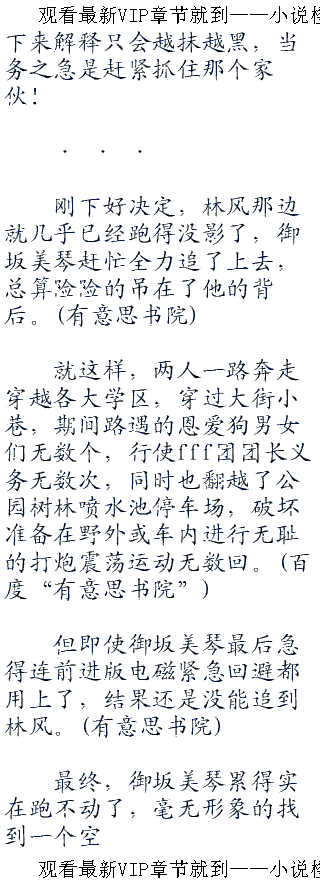 观看最新VIP章节就到——小说
下来解释只会越抹越黑，当
务之急是赶紧抓住那个家
伙！
．．．
刚下好决定，林风那边
就几乎已经跑得没影了，御
坂美琴赶忙全力追了上去，
总算险险的吊在了他的背
后。(有意思书院)
就这样，两人一路奔走
穿越各大学区，穿过大街小
巷，期间路遇的恩爱狗男女
们无数个，行使fff团团长义
务无数次，同时也翻越了公
园树林喷水池停车场，破坏
准备在野外或车内进行无耻
的打炮震荡运动无数回。(百
度“有意思书院”)
但即使御坂美琴最后急
得连前进版电磁紧急回避都
用上了，结果还是没能追到
林风。(有意思书院)
最终，御坂美琴累得实
在跑不动了，毫无形象的找
到一个空
观看最新VIP章节就到——小说